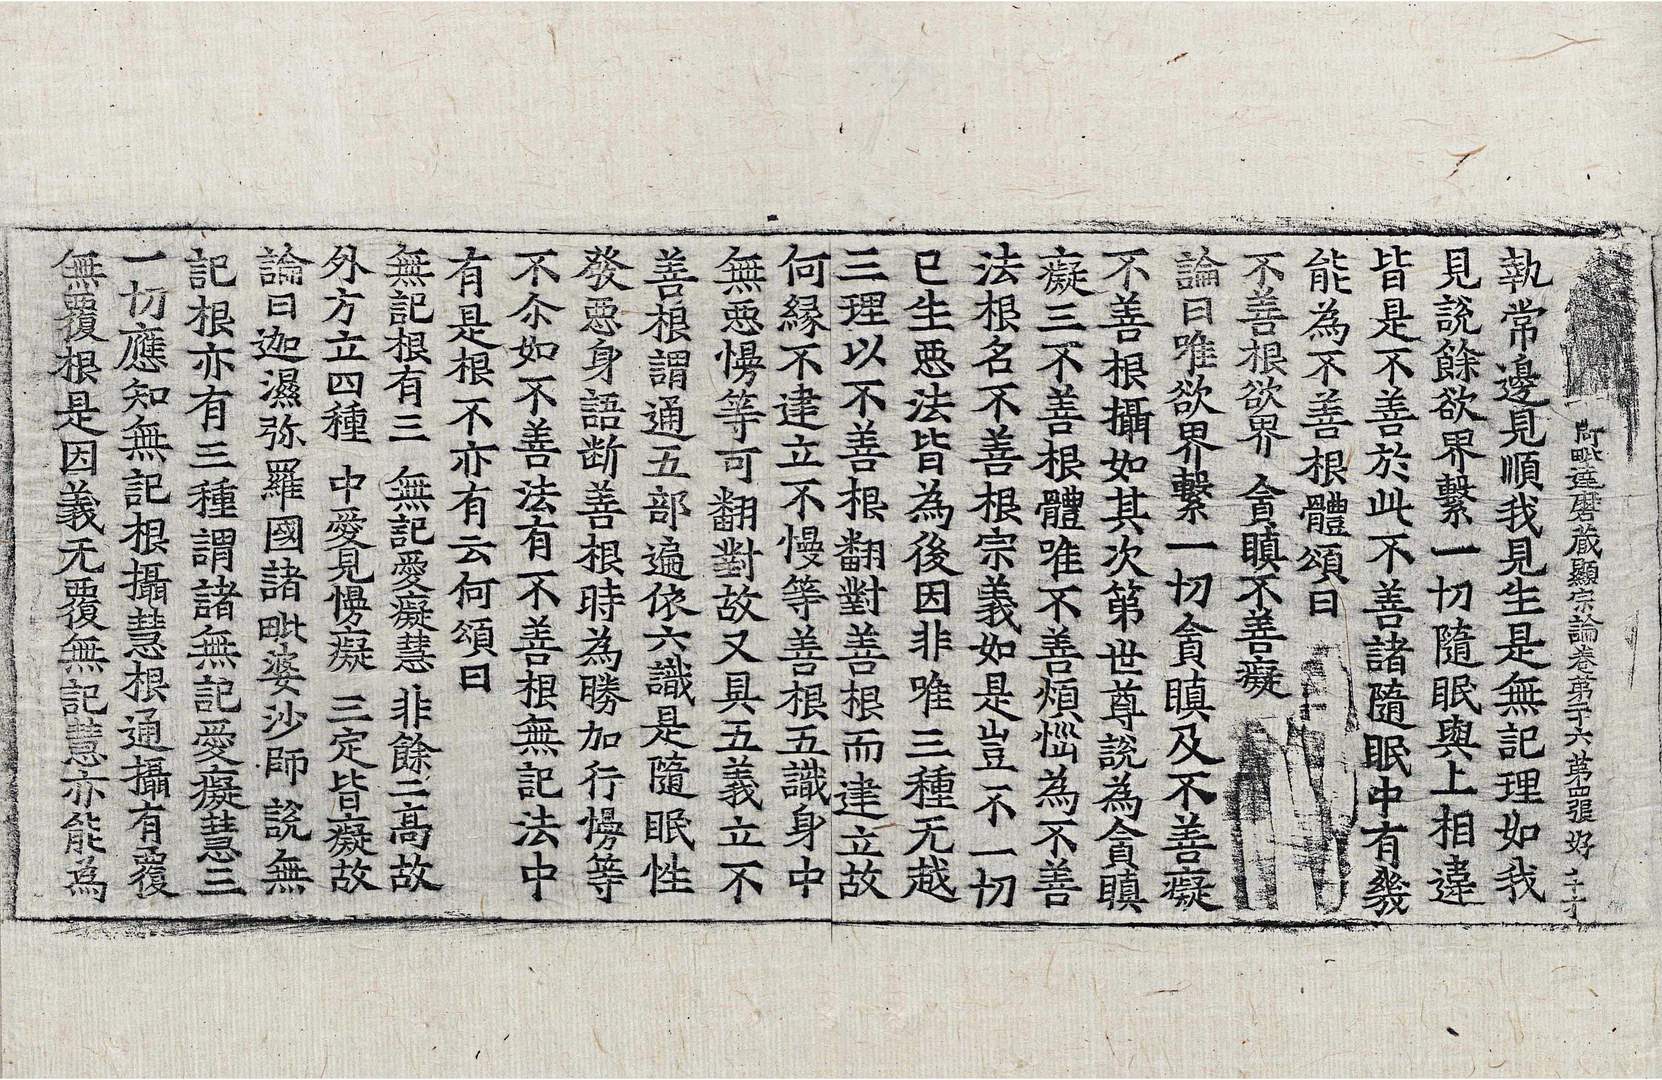 阿毗達磨蔵顯宗論卷第二十六 第四張 好
執常邊見順我見生是無記理如我
見說餘欲界繫一切隨眠與上相違
皆是不善於此不善諸隨眠中有幾
能為不善根體頌曰
不善根欲界 貪瞋不善癡
論曰唯欲界繫一切貪瞋及不善癡
不善根攝如其次第世尊說為貪瞋
癡三不善根體唯不善煩惱為不善
法根名不善根宗義如是豈不一切
已生惡法皆為後因非唯三種无越
三理以不善根翻對善根而建立故
何緣不建立不慢等善根五識身中
無惡慢等可翻對故又具五義立不
善根謂通五部遍依六識是隨眠性
發惡身語断善根時為勝加行慢等
不尒如不善法有不善根無記法中
有是根不亦有云何頌曰
無記根有三 無記愛癡慧 非餘二高故
外方立四種 中愛見慢癡 三定皆癡故
論曰迦濕弥羅國諸毗婆沙師說無
記根亦有三種謂諸無記愛癡慧三
一切應知無記根攝慧根通攝有覆
無覆根是因義无覆無記慧亦能為